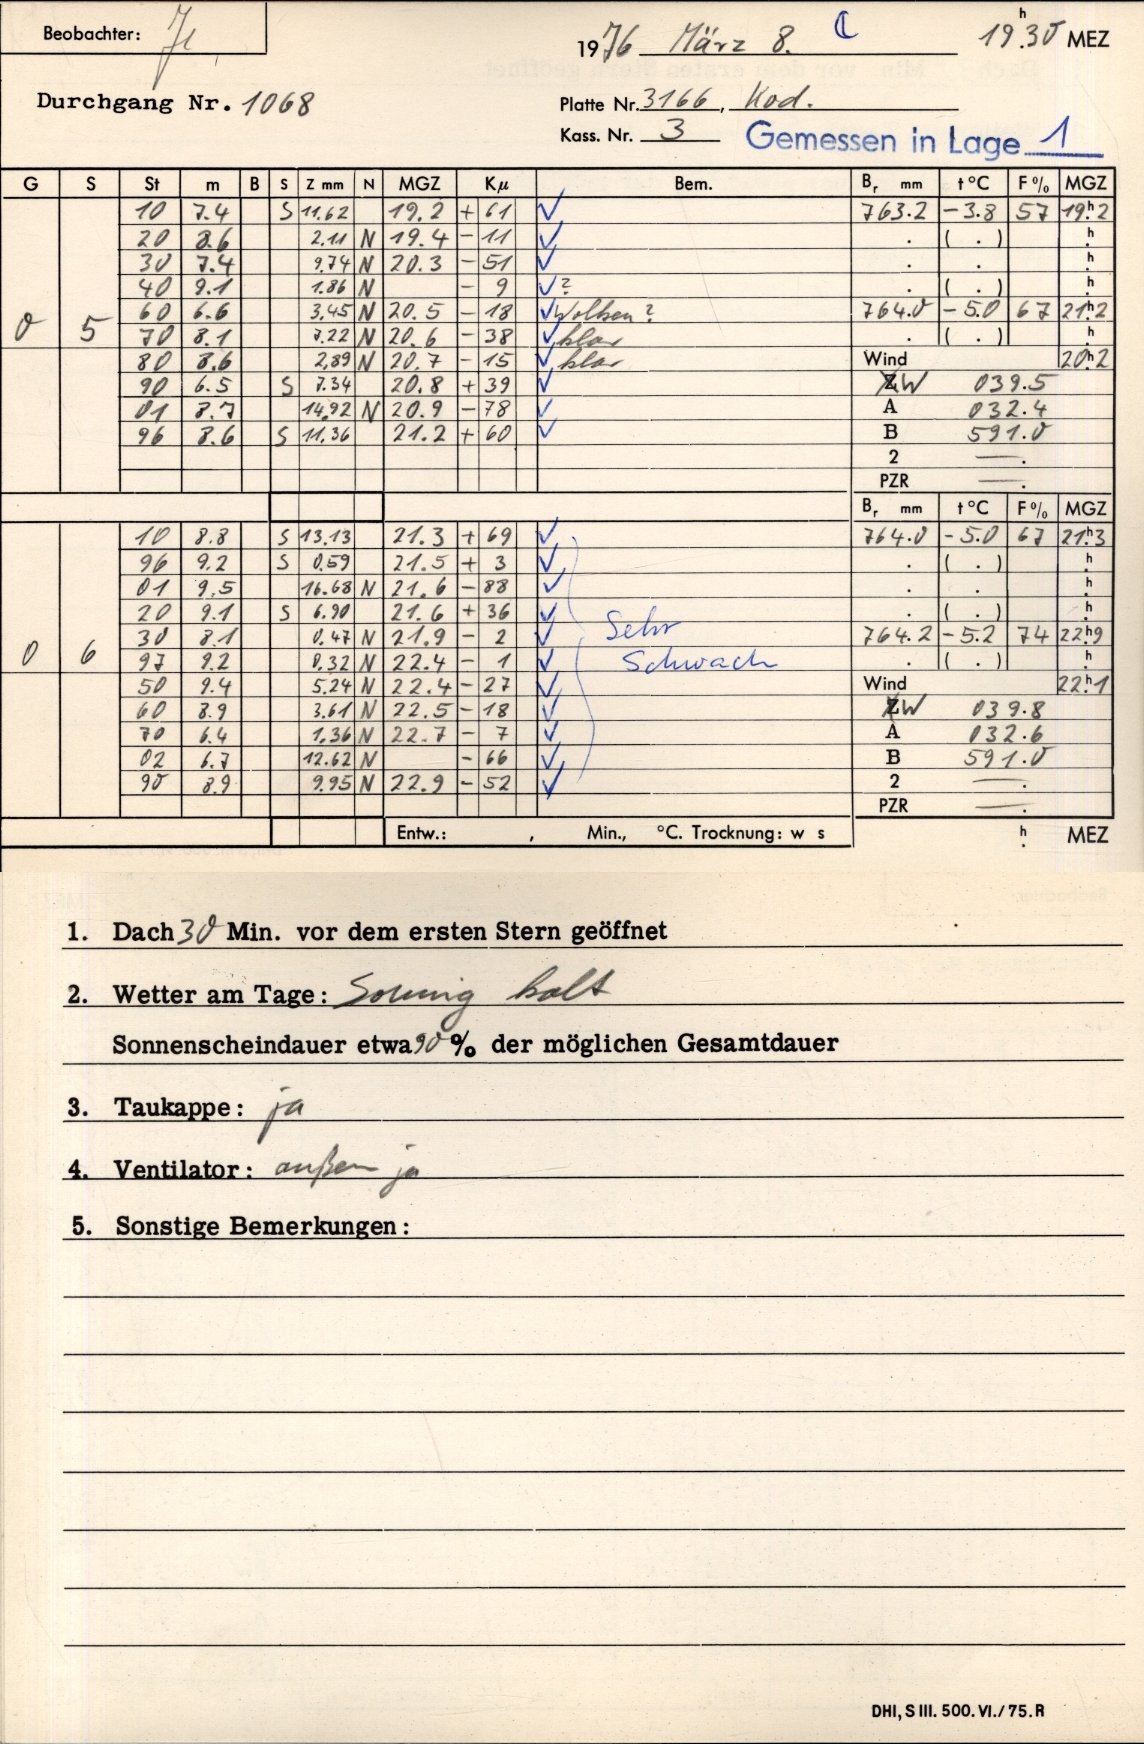 Beobachter: Je
1976 März 8. ☾ 19h.30 MEZ
Durchgang Nr. 1068
Platte Nr. 3166, Kod.
Kass. Nr. 3 Gemessen in Lage 1
G S St m B S Z mm N MGZ Kμ Bem. Br mm t °C F% MGZ
10 7.4 S 11.62 19.2 + 61 ✓ 763.2 - 3.8 57 19h.2
20 8.6 2.11 N 19.4 - 11 ✓ . ( . ) h.
30 7.4 9.74 N 20.3 - 51 ✓ . . h.
40 9.1 1.86 N - 9 ✓ ? . ( . ) h.
60 6.6 3.45 N 20.5 - 18 ✓ Wolken? 764.0 - 5.0 67 21h.2
0 5 70 8.1 7.22 N 20.6 - 38 ✓ klar . ( . ) h.
80 8.6 2.89 N 20.7 - 15 ✓ klar Wind 20h.2
90 6.5 S 7.34 20.8 + 39 ✓ ZW 039.5
01 8.7 14.92 N 20.9 - 78 ✓ A 032.4
96 8.6 S 11.36 21.2 + 60 ✓ B 591.0
2 — .
PZR — .
Br mm t °C F% MGZ
10 8.8 S 13.13 21.3 + 69 ✓ 764.0 - 5.0 67 21h.3
96 9.2 S 0.59 21.5 + 3 ✓ . ( . ) h.
01 9.5 16.68 N 21.6 - 88 ✓ . . h.
20 9.1 S 6.90 21.6 + 36 ✓ . ( . ) h.
30 8.1 0.47 N 21.9 - 2 ✓ Sehr 764.2 - 5.2 74 22h.9
0 6 97 9.2 0.32 N 22.4 - 1 ✓ Schwach . ( . ) h.
50 9.4 5.24 N 22.4 - 27 ✓ Wind 22h.1
60 8.9 3.61 N 22.5 - 18 ✓ ZW 039.8
70 6.4 1.36 N 22.7 - 7 ✓ A 032.6
02 6.7 12.62 N - 66 ✓ B 591.0
90 8.9 9.95 N 22.9 - 52 ✓ 2 — .
PZR — .
Entw.: , Min., °C. Trocknung: w s h. MEZ
1. Dach 30 Min. vor dem ersten Stern geöffnet
2. Wetter am Tage: Sonnig kalt
Sonnenscheindauer etwa 90 % der möglichen Gesamtdauer
3. Taukappe: ja
4. Ventilator: außen ja
5. Sonstige Bemerkungen:
DHI, S III. 500. VI./75. R